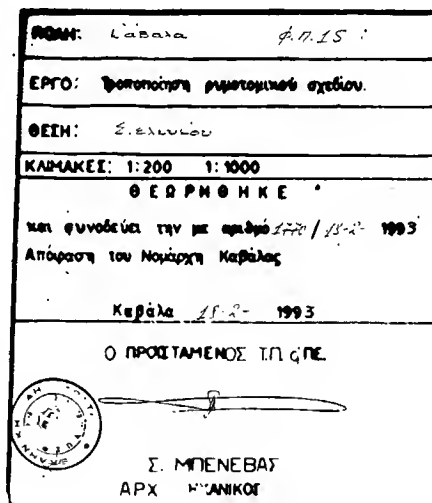 ΠΟΛΗ: Καβαλα Φ.Π.15
ΕΡΓΟ: Τροποποίηση ρυμοτομικού σχεδίου.
ΘΕΣΗ:
ΚΛΙΜΑΚΕΣ: 1:200 1:1000
ΘΕΩΡΗΘΗΚΕ
και συνοδεύει την με αριθμό / 18-2- 1993
Απόφαση του Νομάρχη Καβάλας
Καβάλα 18-2- 1993
Ο ΠΡΟΙΣΤΑΜΕΝΟΣ Τ.Π. & ΠΕ.
Σ. ΜΠΕΝΕΒΑΣ
ΑΡΧ ΜΗΧΑΝΙΚΟΣ